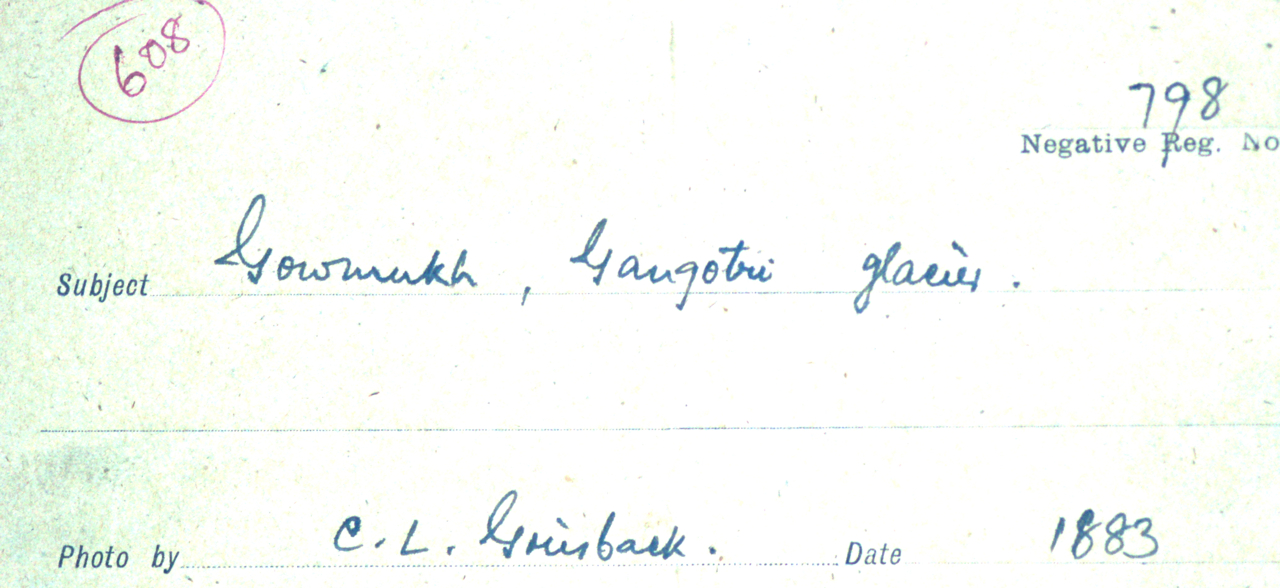 608
798
Negative Reg. No
Subject Gowmukh, Gangotri glacier.
Photo by C. L. Griesback. Date 1883